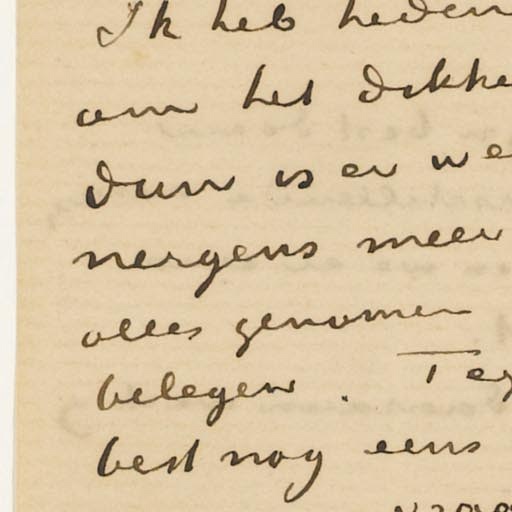 Ik heb heden
om het dikke
dun is er we
nergens meer
alles genomen
belegen. Teg
best nog eens